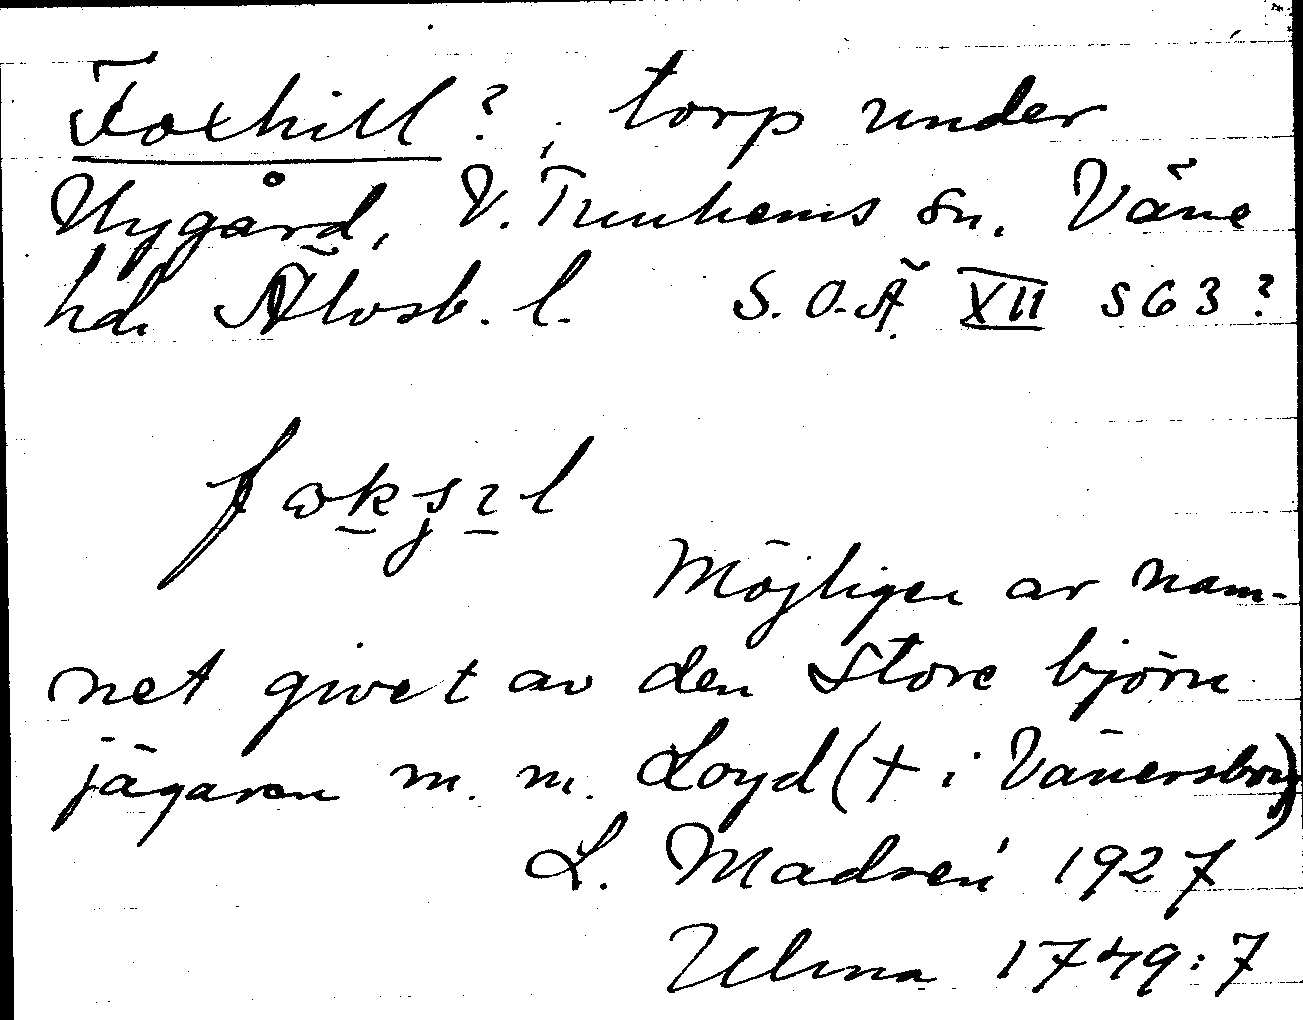 Foxhill?, torp under
Nygård, V. Tunhems sn. Väne
hd. Älvsb. l. S.O.Ä XII s 63?
fωksɩl
Möjligen av nam-
net givet av den store björn
jägaren m. m. Loyd († i Vänersborg)
L. Madsén 1927
Ulma 1749:7